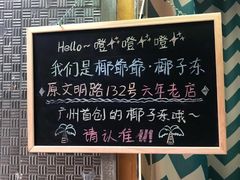 Hello~噔噔噔
我们是椰爷爷·椰子冻
原文明路132号六年老店
广州首创的椰子冻哦~
请认准!!!